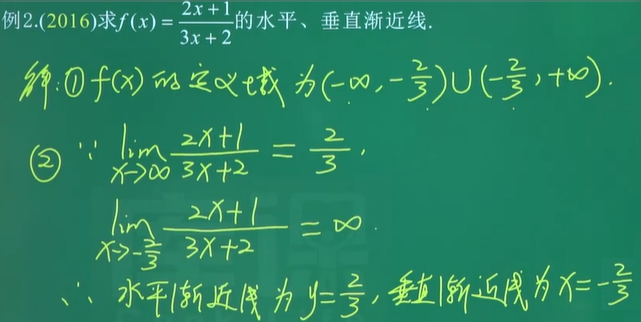 例2.(2016)求f(x)=\frac{2x+1}{3x+2}的水平、垂直渐近线.
解:①f(x)的定义域为(-∞,-\frac{2}{3})∪(-\frac{2}{3},+∞).
② ∵ \lim_{x→∞}\frac{2x+1}{3x+2}=\frac{2}{3},
\lim_{x→-\frac{2}{3}}\frac{2x+1}{3x+2}=∞.
∴ 水平渐近线为y=\frac{2}{3},垂直渐近线为x=-\frac{2}{3}